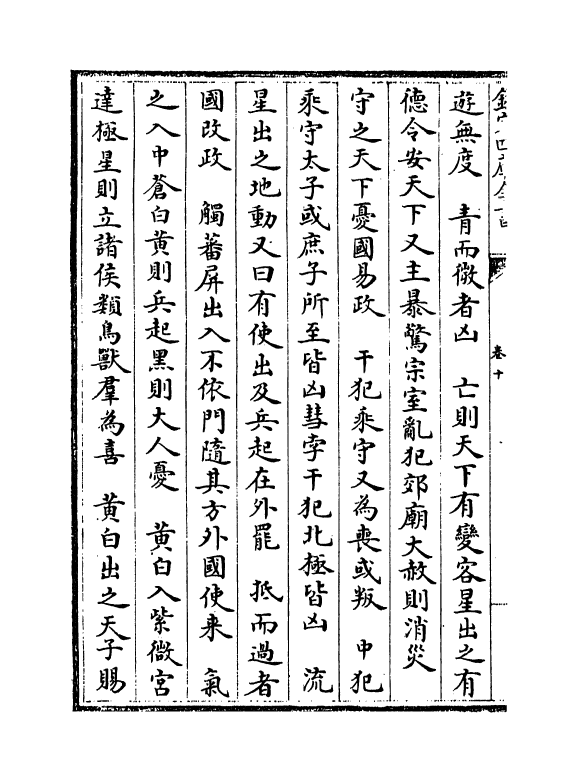 卷十
遊無度　青而微者凶　亡則天下有變客星出之有
德令安天下又主暴驚宗室亂犯郊廟大赦則消災
守之天下憂國易政　干犯乘守又為喪或叛　中犯
乘守太子或庶子所至皆凶彗孛干犯北極皆凶　流
星出之地動又曰有使出及兵起在外罷　抵而過者
國改政　觸蕃屏出入不依門隨其方外國使来　氣
之入中蒼白黄則兵起黑則大人憂　黄白入紫微宫
達極星則立諸侯類鳥獸羣為喜　黄白出之天子賜